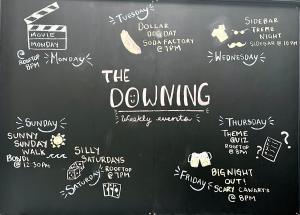 MOVIE
MONDAY
@ ROOFTOP
8PM
MONDAY
TUESDAY
DOLLAR
DOG DAY
SODA FACTORY
@ 7PM
SIDEBAR
THEME
NIGHT
SIDEBAR @ 10PM
WEDNESDAY
THE
DOWNING
Weekly events
SUNDAY
SUNNY
SUNDAY
WALK
BONDI
@ 12:30PM
SILLY
SATURDAYS
ROOFTOP
@ 7PM
SATURDAY
THURSDAY
THEME
QUIZ
ROOFTOP
@ 8PM
FRIDAY
BIG NIGHT
OUT!
SCARY CANARY'S
@ 8PM